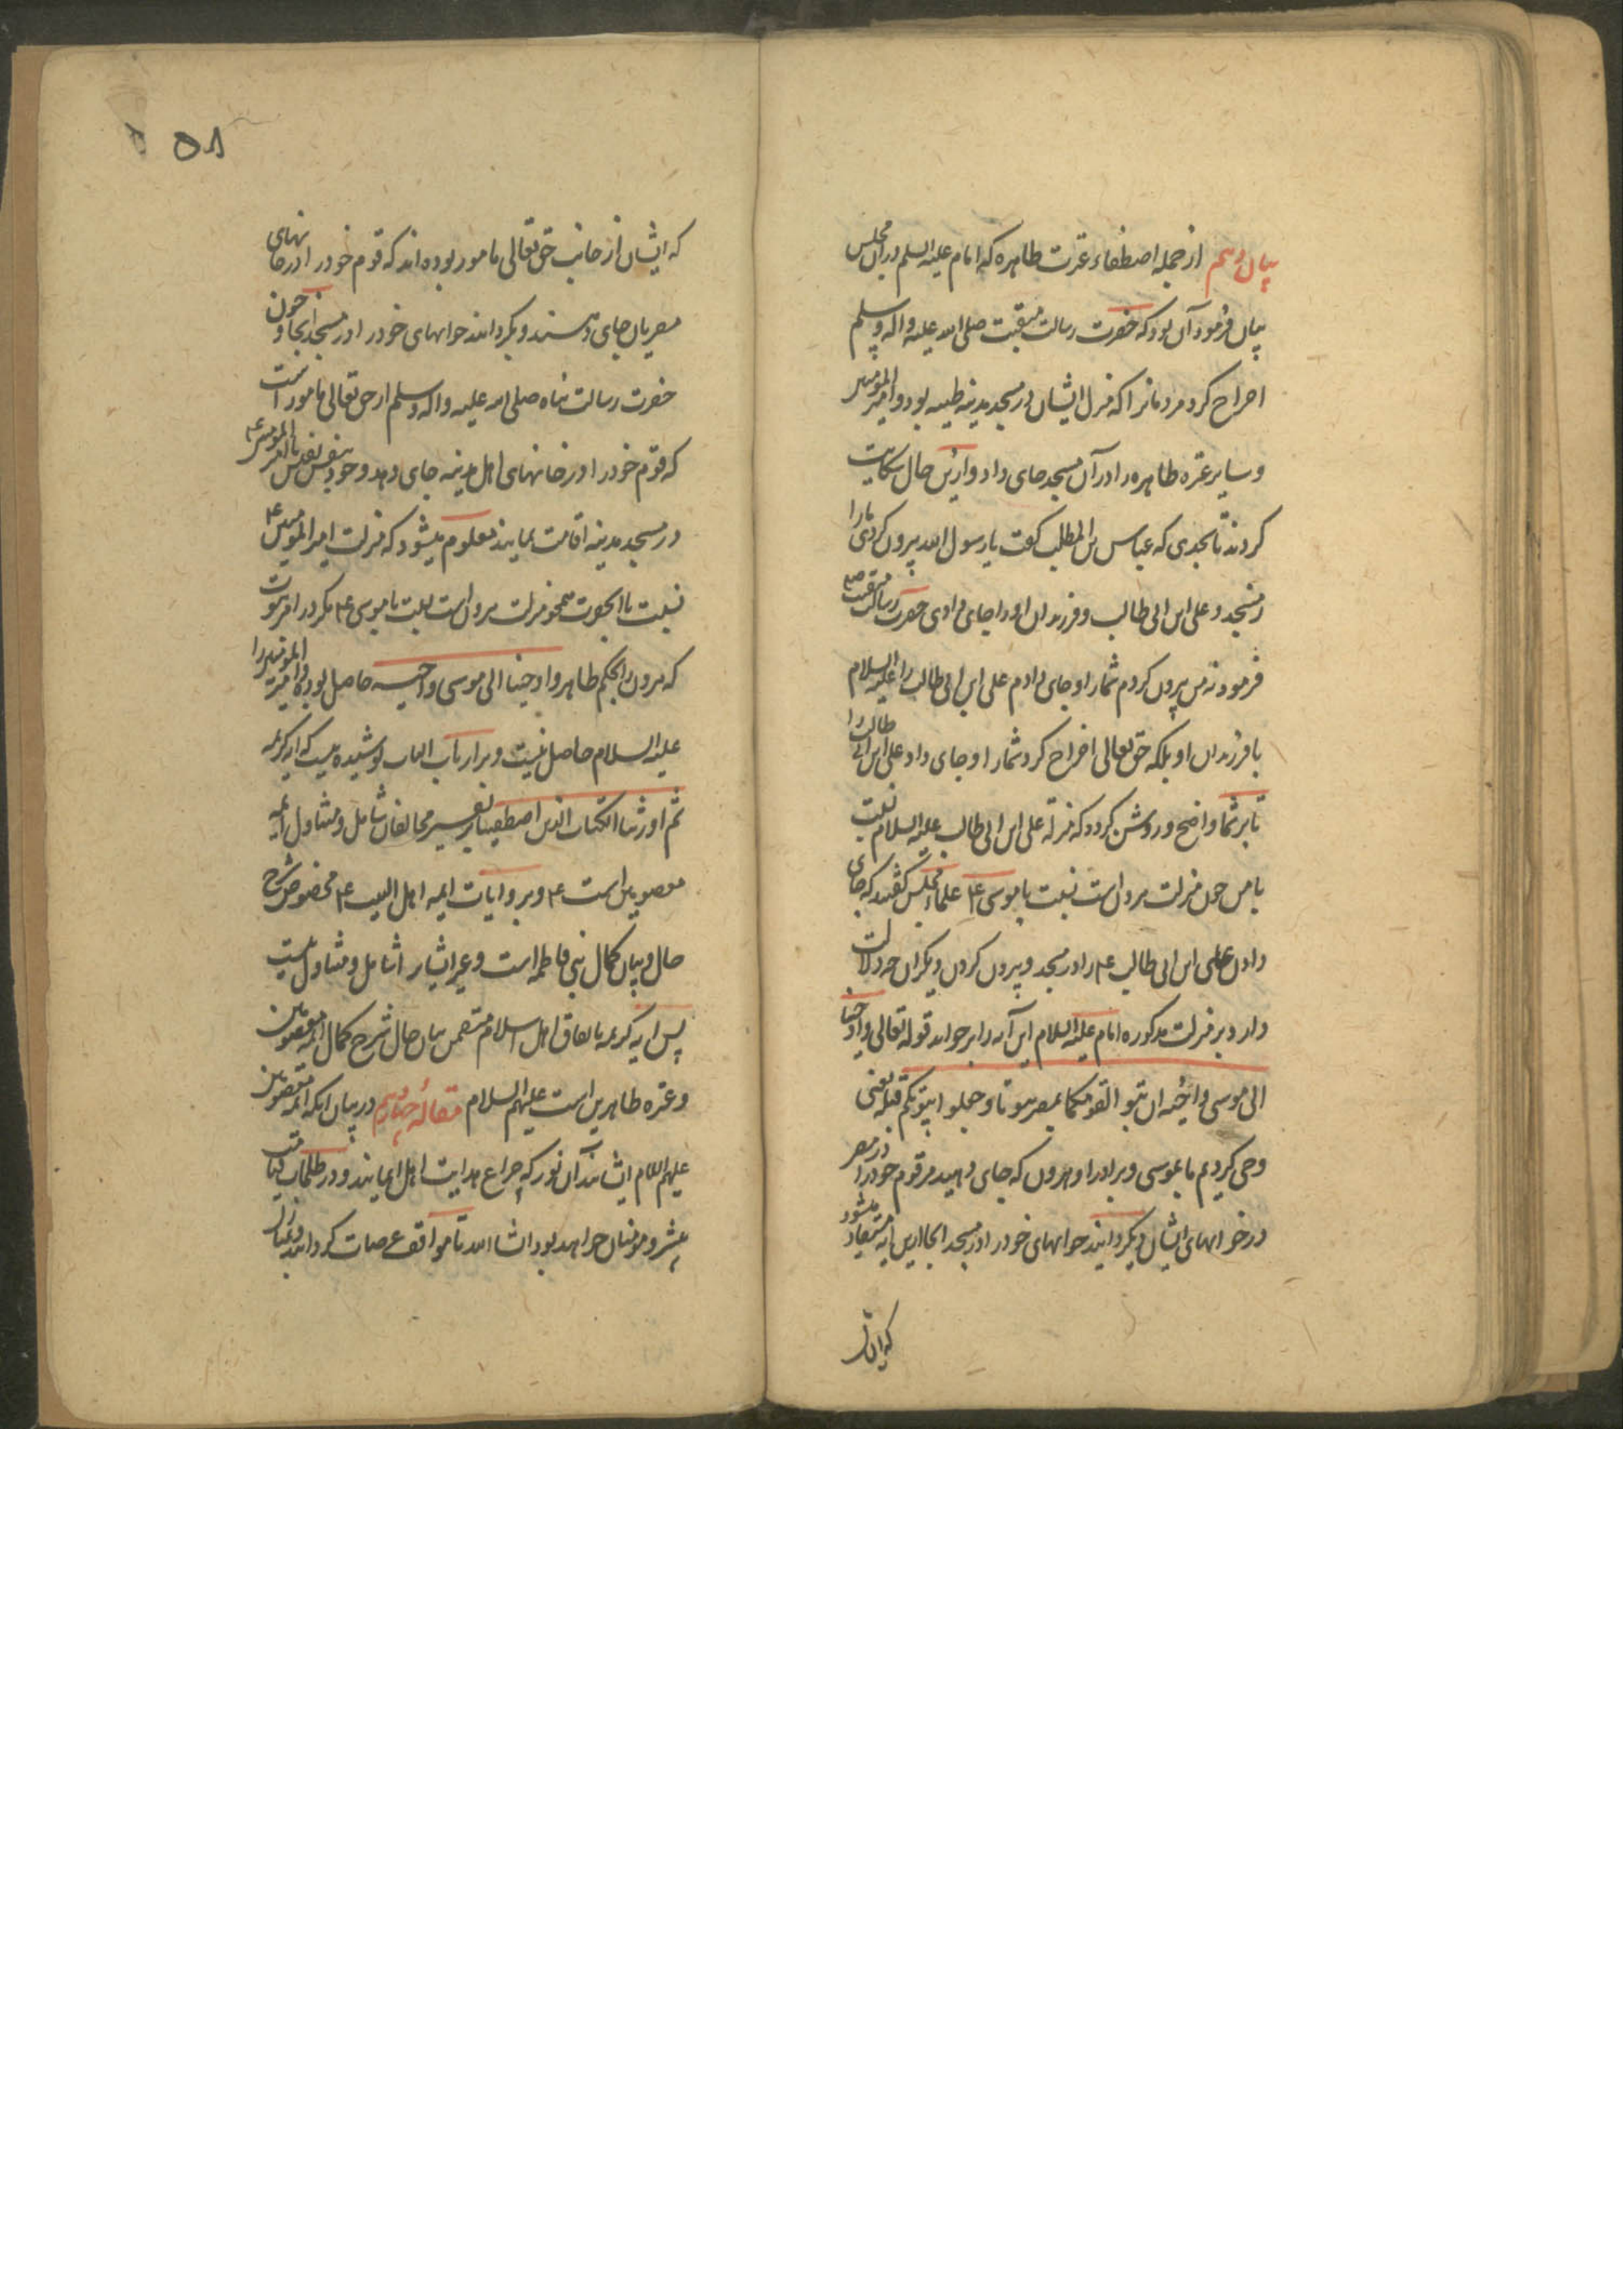 بیان دهم از جمله اصطفاء عترت طاهره که امام علیه السلم در ان مجلس
بیان فرمود آن بود که حضرت رسالت منقبت صلی الله علیه واله وسلم
اخراج کرد مردمانرا که منزل ایشان در مسجد مدینه طیبه بود وامیر المومنین
وسایر عتره طاهره را در آن مسجد جای داد وازین حال شکایت
کردند تا بحدی که عباس بن المطلب کفت یا رسول الله بیرون کردی ما را
ز مسجد و علی ابن ابی طالب و فرزندان او را جای دادی حضرت رسالت منقبت ص
فرمود نه من بیرون کردم شما را و جای دادم علی ابن ابی طالب را علیه السلام
با فرزندان او بلکه حق تعالی اخراج کرد شما را و جای داد علی ابن ابی طالب را
تا بر شما واضح و روشن کردد که منزله علی ابن ابی طالب علیه السلام نسبت
با من چون منزلت هرون است نسبت با موسی ع علماء مجلس کفتند که جای
دادن علی ابن ابی طالب ع را در مسجد و بیرون کردن دیکران چه دلالت
دارد بر منزلت مذکوره امام علیه السلام این آیه را بر خواند قوله تعالی واوحینا
الی موسی واخیه ان تبوا لقومکما بمصر بیوتا واجعلوا بیوتکم قبله یعنی
وحی کردیم ما بموسی و برادر او هرون که جای دهید مر قوم خود را در مصر
در خوابهای ایشان و بکردانید خوابهای خود را در مسجد انجا ازین آیه مستفاد میشود
که ایشان
۵۸
که ایشان از جانب حق تعالی مامور بوده اند که قوم خود را در خانهای
مصریان جای دهند و بکردانند خوابهای خود را در مسجد انجا و چون
حضرت رسالت پناه صلی الله علیه واله وسلم از حق تعالی مامور است
که قوم خود را در خانهای اهل مدینه جای دهد و خود بنفس نفیس با امیر المومنین ع
در مسجد مدینه اقامت نمایند معلوم میشود که منزلت امیر المومنین ع
نسبت با انحضرت همچو منزلت هرون است نسبت با موسی ع مکر در امر نبوت
که هرون را بحکم ظاهر واوحینا الی موسی واخیه حاصل بوده و امیر المومنین را
علیه السلام حاصل نیست و بر ارباب الباب پوشیده نیست که آیه کریمه
ثم اورثنا الکتاب الذین اصطفینا بر تفسیر مخالفان شامل و متناول ایمه
معصومین است ع و بر روایات ایمه اهل البیت ع مخصوص شرح
حال و بیان کمال بنی فاطمه است و غیر ایشان را شامل و متناول نیست
پس آیه کریمه باتفاق اهل اسلام متضمن بیان حال و شرح کمال ائمه معصومین
و عتره طاهرین است علیهم السلام مقاله چهارم در بیان انکه ائمه معصومین
علیهم السلام ایشانند آن نور که چراغ هدایت اهل ایمانند و در ظلمات قیامت
پیش رو مومنان خواهد بود انشا الله تا مواقف عرصات کردانند